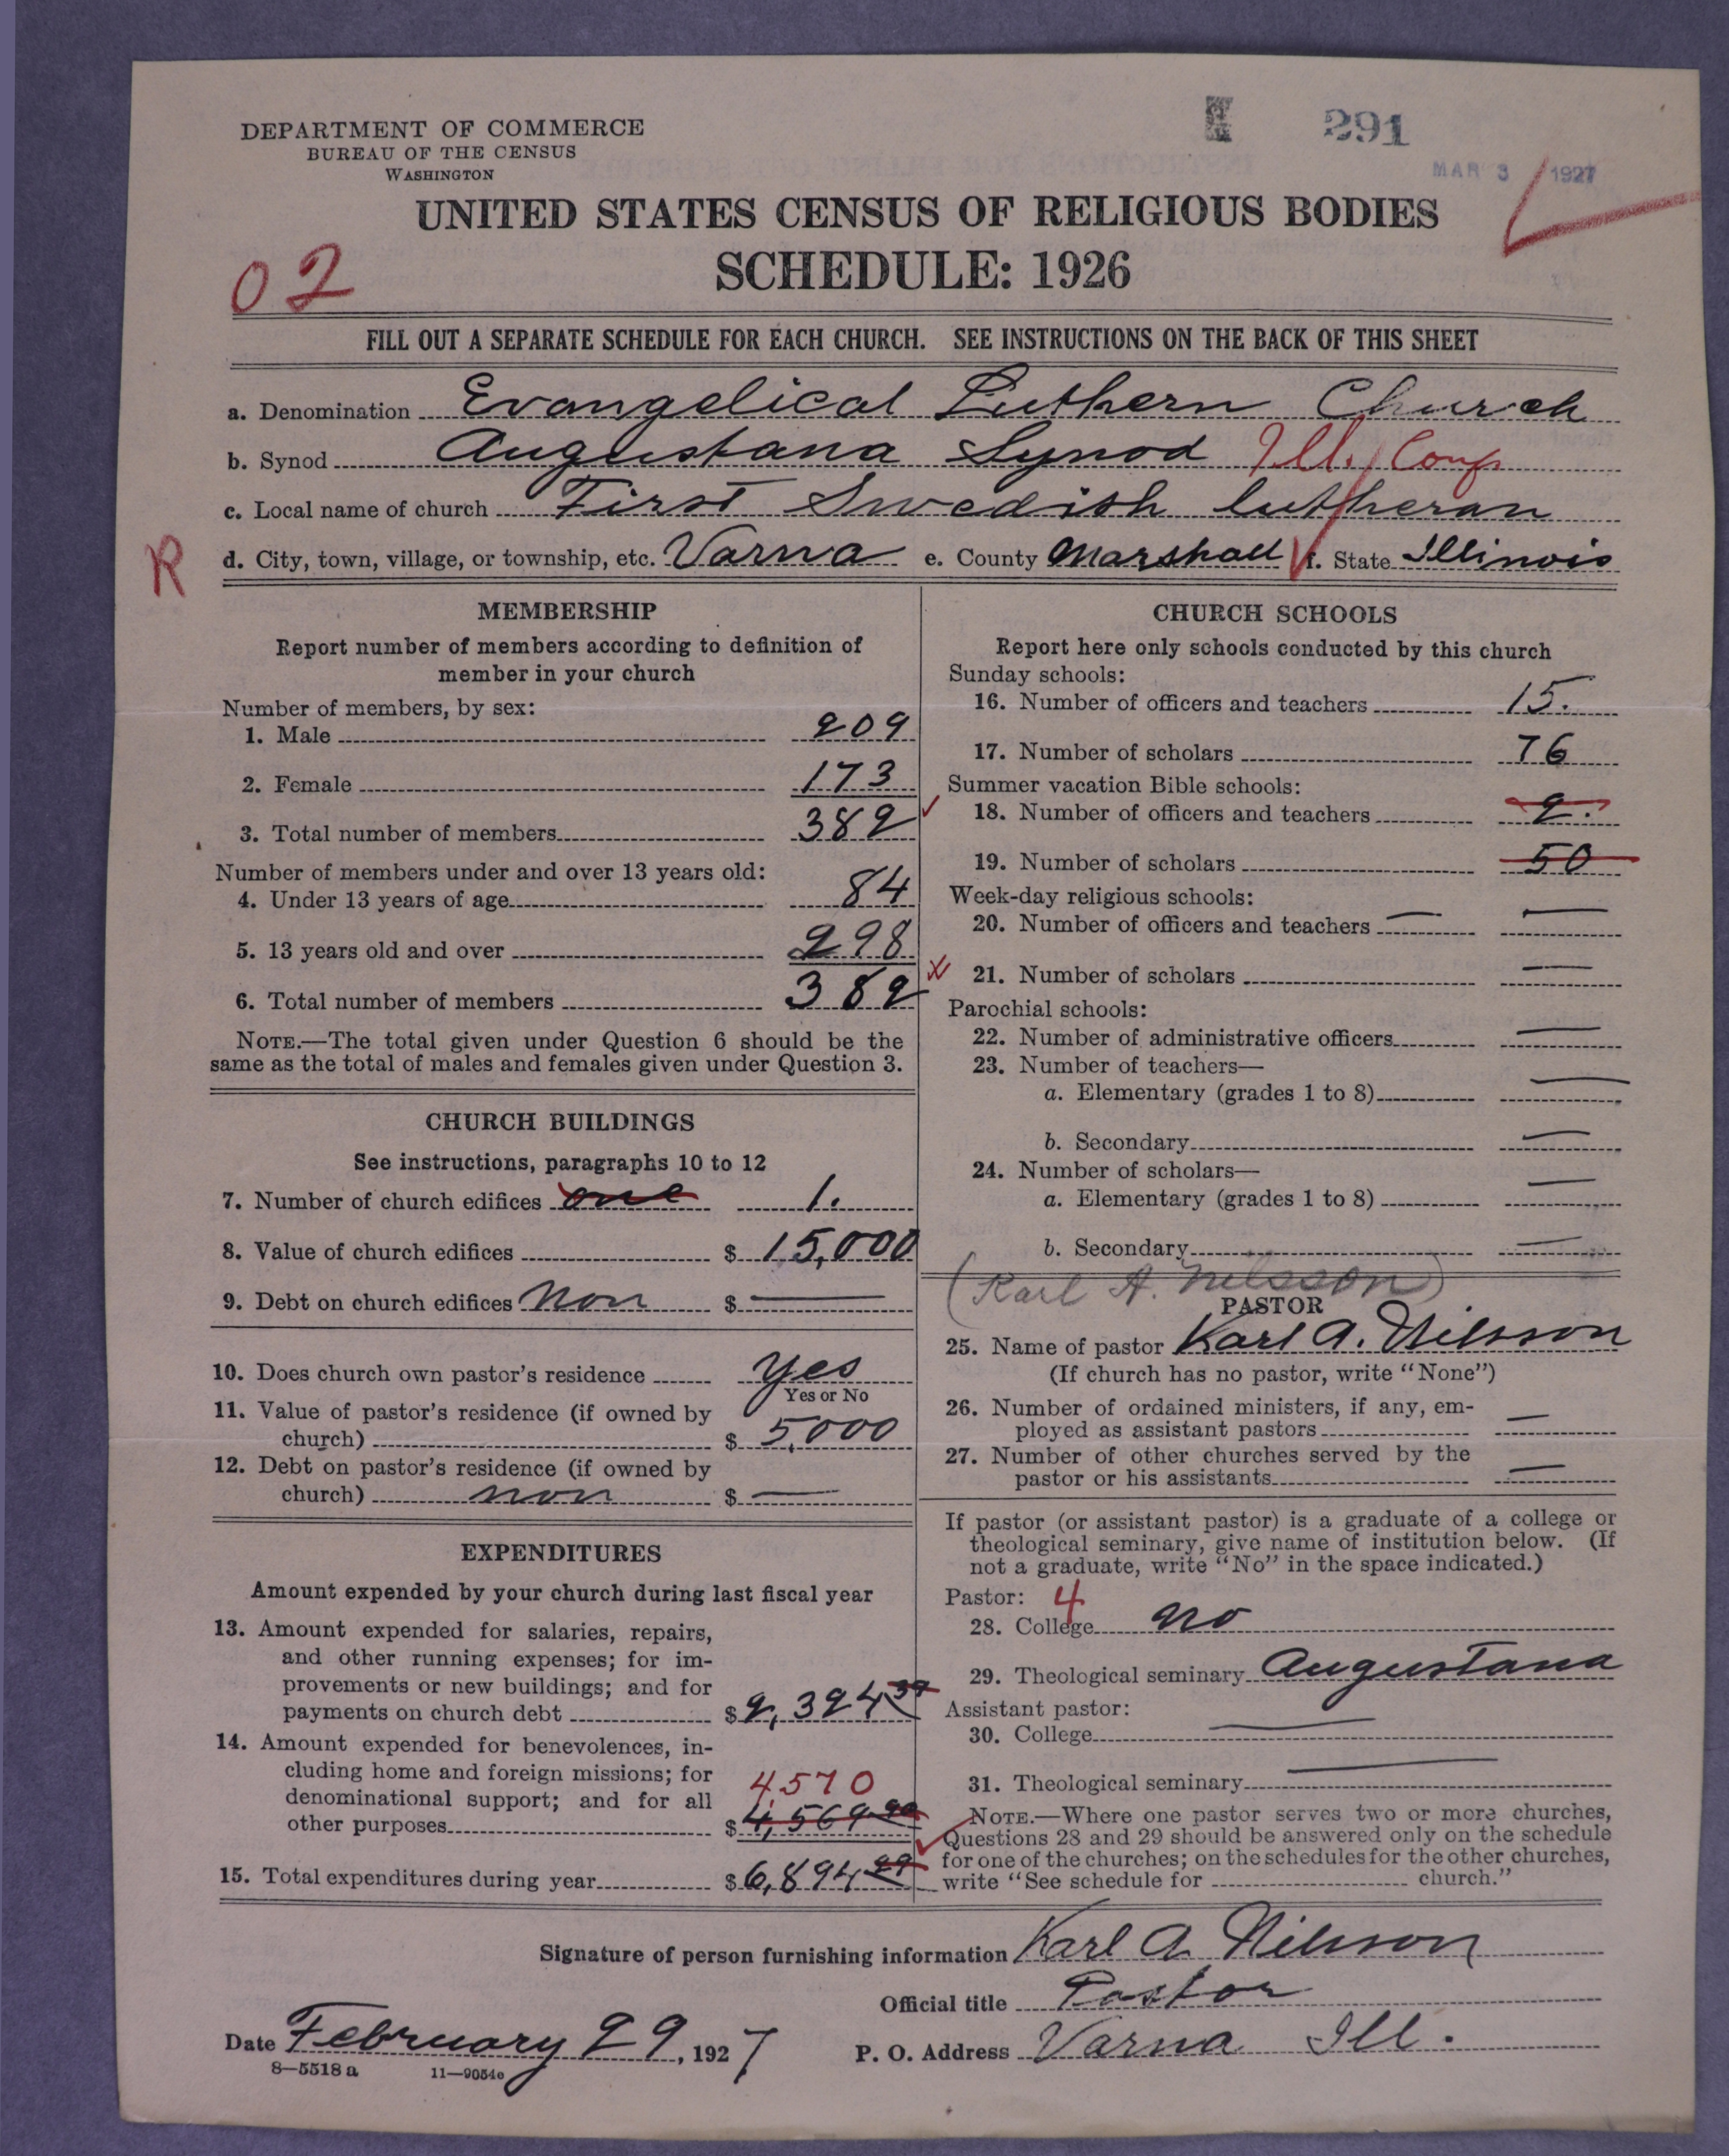 DEPARTMENT OF COMMERCE
BUREAU OF THE CENSUS
WASHINGTON
291
MAR 3 1927
UNITED STATES CENSUS OF RELIGIOUS BODIES
SCHEDULE: 1926
02
FILL OUT A SEPARATE SCHEDULE FOR EACH CHURCH. SEE INSTRUCTIONS ON THE BACK OF THIS SHEET
a. Denomination Evangelical Luthern Church
b. Synod Augustana Synod Ill. Conf
c. Local name of church First Swedish lutheran
R d. City, town, village, or township, etc. Varna e. County Marshall f. State Illinois
MEMBERSHIP
Report number of members according to definition of
member in your church
Number of members, by sex:
1. Male 209
2. Female 173
3. Total number of members 382
Number of members under and over 13 years old:
4. Under 13 years of age 84
5. 13 years old and over 298
6. Total number of members 382
NOTE.—The total given under Question 6 should be the
same as the total of males and females given under Question 3.
CHURCH BUILDINGS
See instructions, paragraphs 10 to 12
7. Number of church edifices one 1.
8. Value of church edifices $ 15,000
9. Debt on church edifices Non $ —
10. Does church own pastor's residence yes
Yes or No
11. Value of pastor's residence (if owned by
church) $ 5,000
12. Debt on pastor's residence (if owned by
church) non $ —
EXPENDITURES
Amount expended by your church during last fiscal year
13. Amount expended for salaries, repairs,
and other running expenses; for im-
provements or new buildings; and for
payments on church debt $ 2,324 37
14. Amount expended for benevolences, in-
cluding home and foreign missions; for
denominational support; and for all
4,570
other purposes $ 4,569 90
15. Total expenditures during year $ 6,894 27
CHURCH SCHOOLS
Report here only schools conducted by this church
Sunday schools:
16. Number of officers and teachers 15.
17. Number of scholars 76
Summer vacation Bible schools:
18. Number of officers and teachers 2.
19. Number of scholars 50
Week-day religious schools:
20. Number of officers and teachers — —
21. Number of scholars —
Parochial schools:
22. Number of administrative officers —
23. Number of teachers—
a. Elementary (grades 1 to 8) —
b. Secondary —
24. Number of scholars—
a. Elementary (grades 1 to 8) —
b. Secondary —
(Karl A. Nelsson)
PASTOR
25. Name of pastor Karl A. Nilsson
(If church has no pastor, write "None")
26. Number of ordained ministers, if any, em-
ployed as assistant pastors —
27. Number of other churches served by the
pastor or his assistants —
If pastor (or assistant pastor) is a graduate of a college or
theological seminary, give name of institution below. (If
not a graduate, write "No" in the space indicated.)
Pastor: 4
28. College no
29. Theological seminary Augustana
Assistant pastor:
30. College —
31. Theological seminary —
NOTE.—Where one pastor serves two or more churches,
Questions 28 and 29 should be answered only on the schedule
for one of the churches; on the schedules for the other churches,
write "See schedule for church."
Signature of person furnishing information Karl A. Nilsson
Official title Pastor
Date February 29, 1927 P. O. Address Varna Ill.
8—5518 a 11—9054c